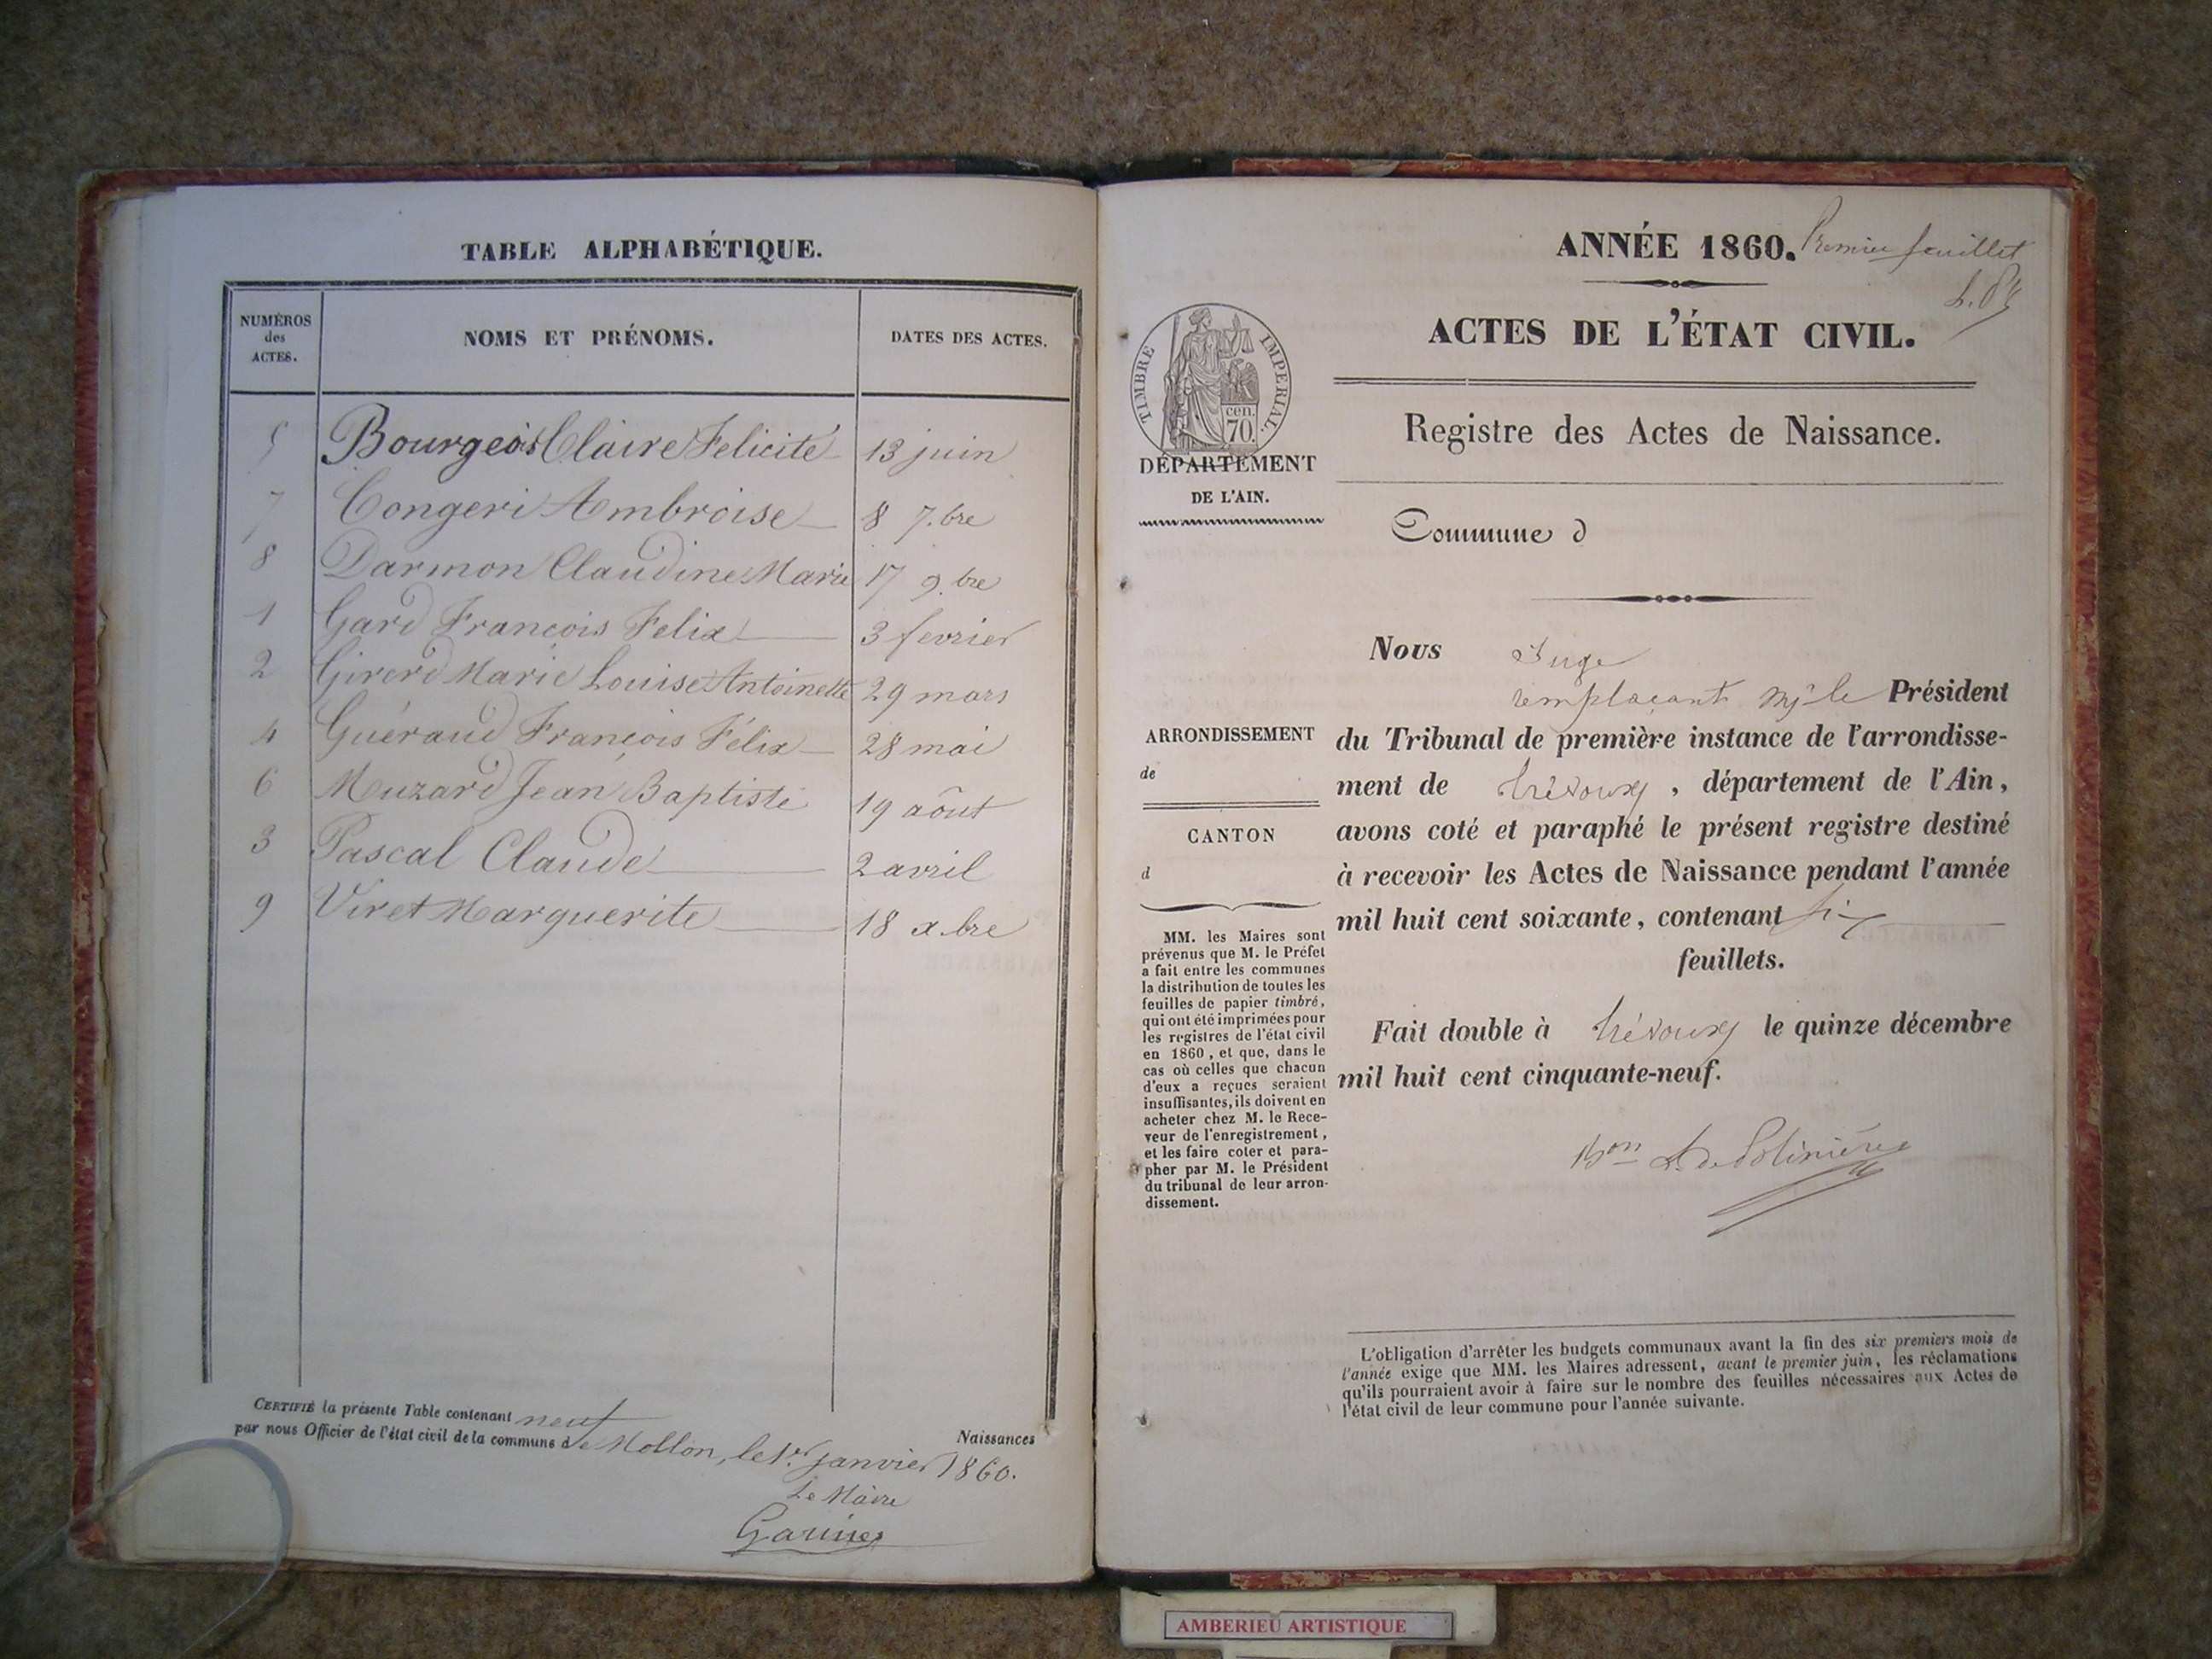 TABLE ALPHABÉTIQUE.
NUMÉROS
des
ACTES.
NOMS ET PRÉNOMS.
DATES DES ACTES.
5 Bourgeois Claire Felicite 13 juin
7 Congeri Ambroise 8 7.bre
8 Darmon Claudine Marie 17 9.bre
1 Gard François Felix 3 fevrier
2 Girerd Marie Louise Antoinette 29 mars
4 Guéraud François Félix 28 mai
6 Muzard Jean Baptiste 19 aôut
3 Pascal Claude 2 avril
9 Viret Marguerite 18 x.bre
CERTIFIÉ la présente Table contenant neuf Naissances
par nous Officier de l'état civil de la commune de Mollon, le 1.er janvier 1860.
Le Maire
ANNÉE 1860. Premier feuillet
ACTES DE L'ÉTAT CIVIL.
TIMBRE IMPERIAL.
cen.
70.
DÉPARTEMENT
DE L'AIN.
Registre des Actes de Naissance.
Commune d
Nous Juge
remplaçant Mr le Président
du Tribunal de première instance de l'arrondisse-
ment de Trévoux, département de l'Ain,
avons coté et paraphé le présent registre destiné
à recevoir les Actes de Naissance pendant l'année
mil huit cent soixante, contenant six
feuillets.
Fait double à Trévoux le quinze décembre
mil huit cent cinquante-neuf.
Bon L. de Polinière
ARRONDISSEMENT
de
CANTON
d
MM. les Maires sont
prévenus que M. le Préfet
a fait entre les communes
la distribution de toutes les
feuilles de papier timbré,
qui ont été imprimées pour
les registres de l'état civil
en 1860, et que, dans le
cas où celles que chacun
d'eux a reçues seraient
insuffisantes, ils doivent en
acheter chez M. le Rece-
veur de l'enregistrement,
et les faire coter et para-
pher par M. le Président
du tribunal de leur arron-
dissement.
L'obligation d'arrêter les budgets communaux avant la fin des six premiers mois de
l'année exige que MM. les Maires adressent, avant le premier juin, les réclamations
qu'ils pourraient avoir à faire sur le nombre des feuilles nécessaires aux Actes de
l'état civil de leur commune pour l'année suivante.
AMBERIEU ARTISTIQUE